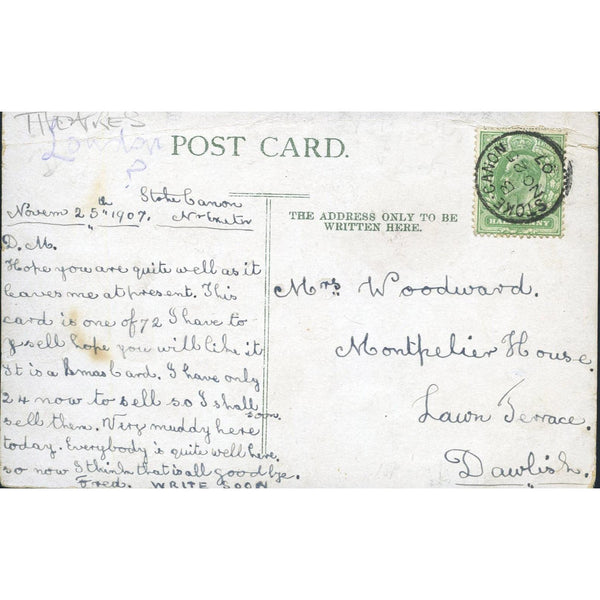 THOAKES
London
?
POST CARD.
Stoke Canon
Novem 25th 1907. Nr Exeter
D. M.
Hope you are quite well as it
leaves me at present. This
card is one of 72 I have to
sell hope you will like it
It is a Xmas Card. I have only
24 now to sell so I shall
soon.
sell them. Very muddy here
today. Everybody is quite well here.
so now I think that is all good bye.
Fred. WRITE SOON
THE ADDRESS ONLY TO BE
WRITTEN HERE.
STOKE-CANON
NO 25
07
Mrs Woodward.
Montpelier House.
Lawn Terrace.
Dawlish.